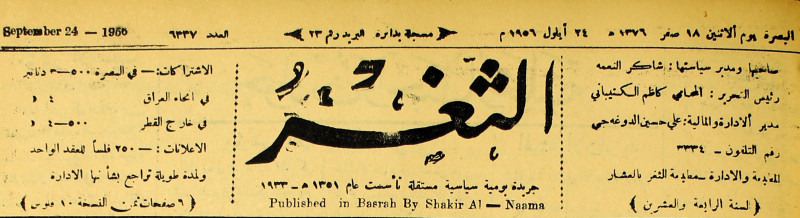 البصرة يوم الاثنين ١٨ صفر ١٣٧٦ هـ ٢٤ أيلول ١٩٥٦ م
مسجلة بدائرة البريد رقم ٢٣
العدد ٦٣٣٧
September 24 — 1956
صاحبها ومدير سياستها : شاكر النعمه
رئيس التحرير : المحامي كاظم الكتيباني
مدير الادارة والمالية : علي حسين الدوغه جي
رقم التلفون — ٣٣٣٤
المقدمية والادارة — بمقدمية الثغر بالعشار
( السنة الرابعة والعشرين )
الثغر
جريدة يومية سياسية مستقلة تأسست عام ١٣٥١ هـ — ١٩٣٣
Published in Basrah By Shakir Al — Naama
الاشتراكات : — في البصرة ٥٠٠—٣ دنانير
في انحاء العراق ٤ د
في خارج القطر ٥٠٠—٤ د
الاعلانات : — ٢٥٠ فلساً للعقد الواحد
ولمدة طويلة تراجع بشأنها الادارة
( ٦ صفحات ثمن النسخة ١٠ فلوس )